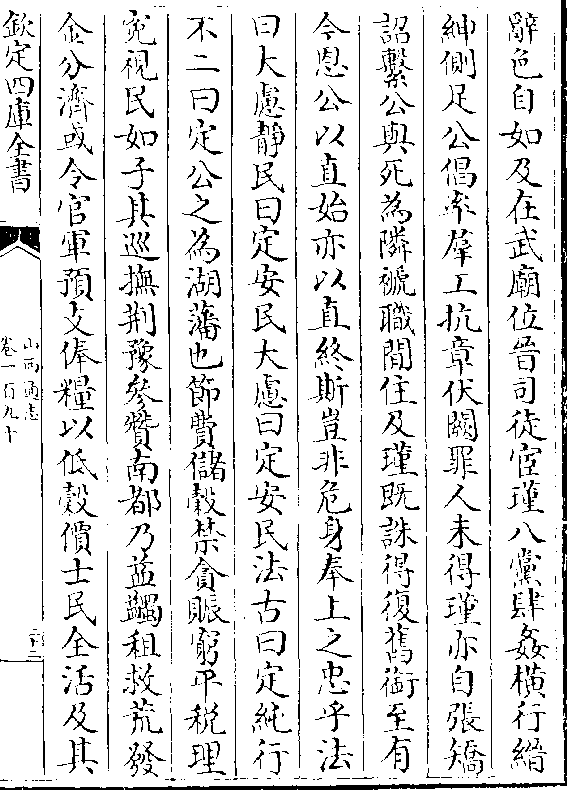 辭色自如及在武廟位晉司徒宦瑾八黨肆姦橫行縉
紳側足公倡率羣工抗章伏闕罪人未得瑾亦自張矯
詔繫公與死為隣褫職閒住及瑾既誅得復舊銜至有
今恩公以直始亦以直終斯豈非危身奉上之忠乎法
曰大慮靜民曰定安民大慮曰定安民法古曰定純行
不二曰定公之為湖藩也節費儲穀禁貪賑窮平税理
寃視民如子其巡撫荆豫叅贊南都乃益蠲租救荒發
金分濟或令官軍預支俸糧以低穀價士民全活及其
欽定四庫全書
山西通志
卷一百九十